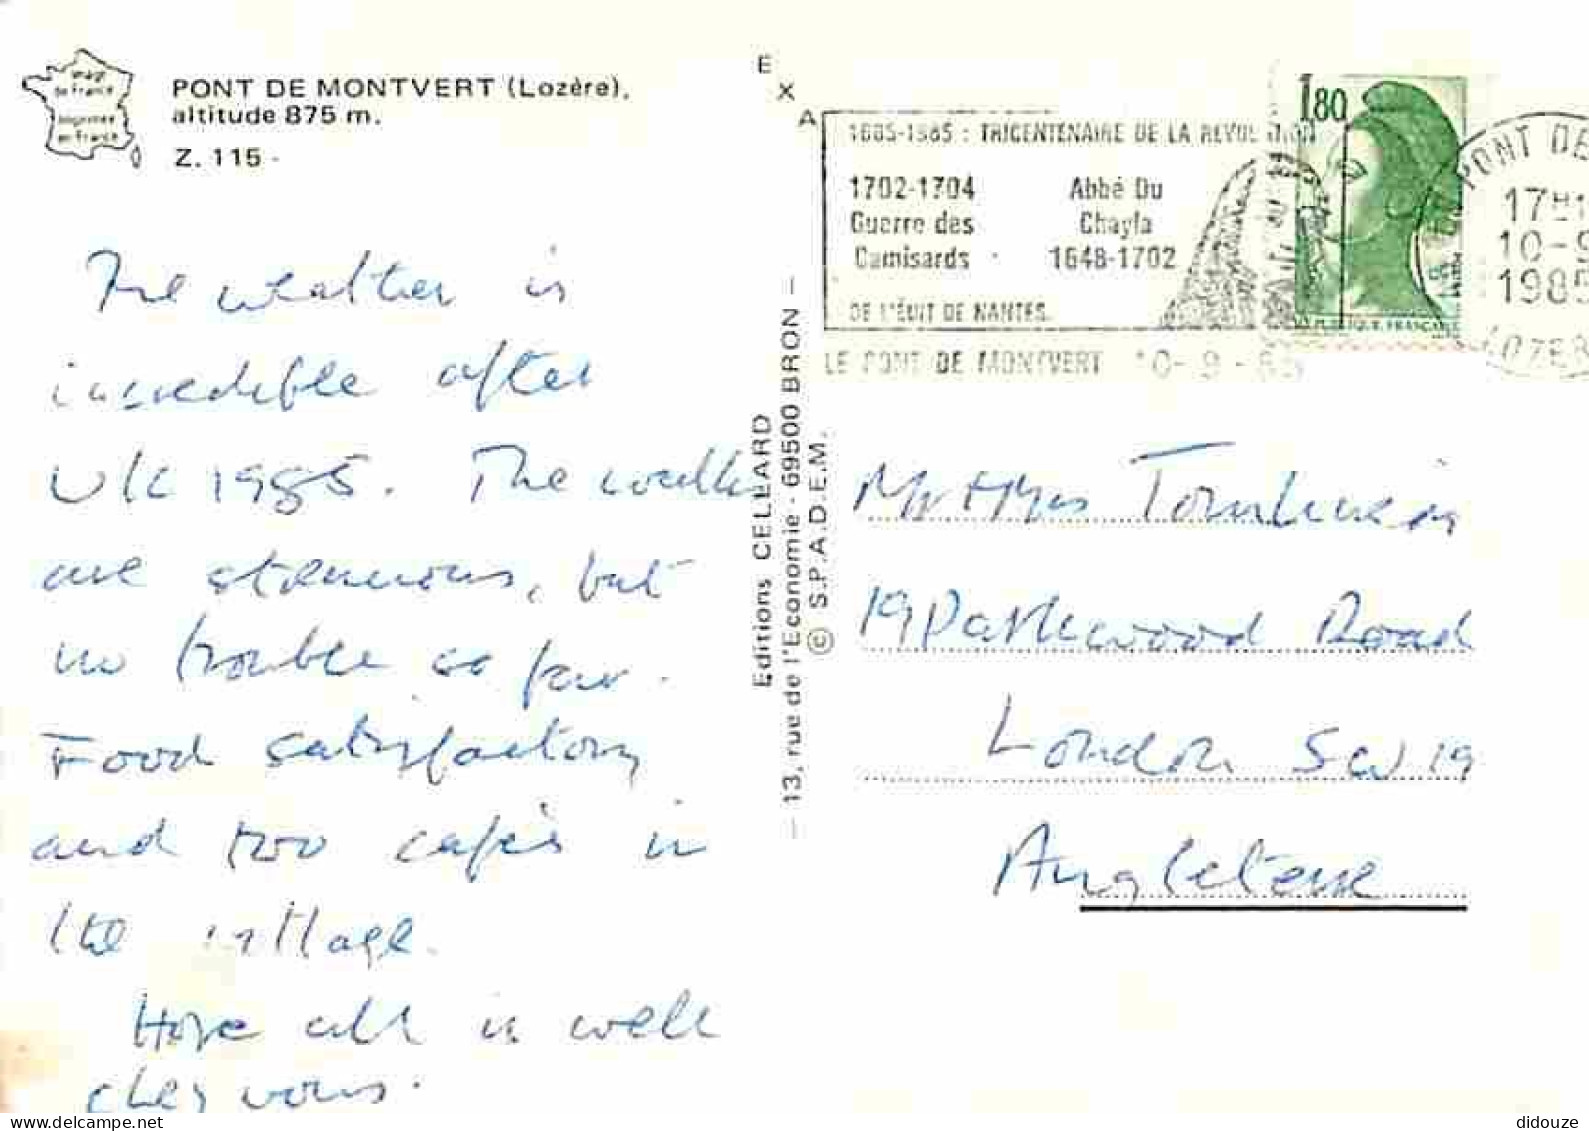 image
de France
imprimée
en France
PONT DE MONTVERT (Lozère),
altitude 875 m.
Z. 115 -
The weather is
incredible after
UK 1985. The walks
are strenuous, but
no trouble so far.
Food satisfactory
and two cafés in
the village.
Hope all is well
chez vous.
EXA
Editions CELLARD
— 13, rue de l'Economie - 69500 BRON —
© S.P.A.D.E.M.
1685-1985 : TRICENTENAIRE DE LA REVOCATION
1702-1704
Guerre des
Camisards
Abbé Du
Chayla
1648-1702
DE L'ÉDIT DE NANTES.
LE PONT DE MONTVERT 10-9-85
1,80
REPUBLIQUE FRANÇAISE
PONT DE
17H
10-9
1985
LOZERE
Mr & Mrs Tomlinson
19 Parkwood Road
London SW19
Angleterre
didouze